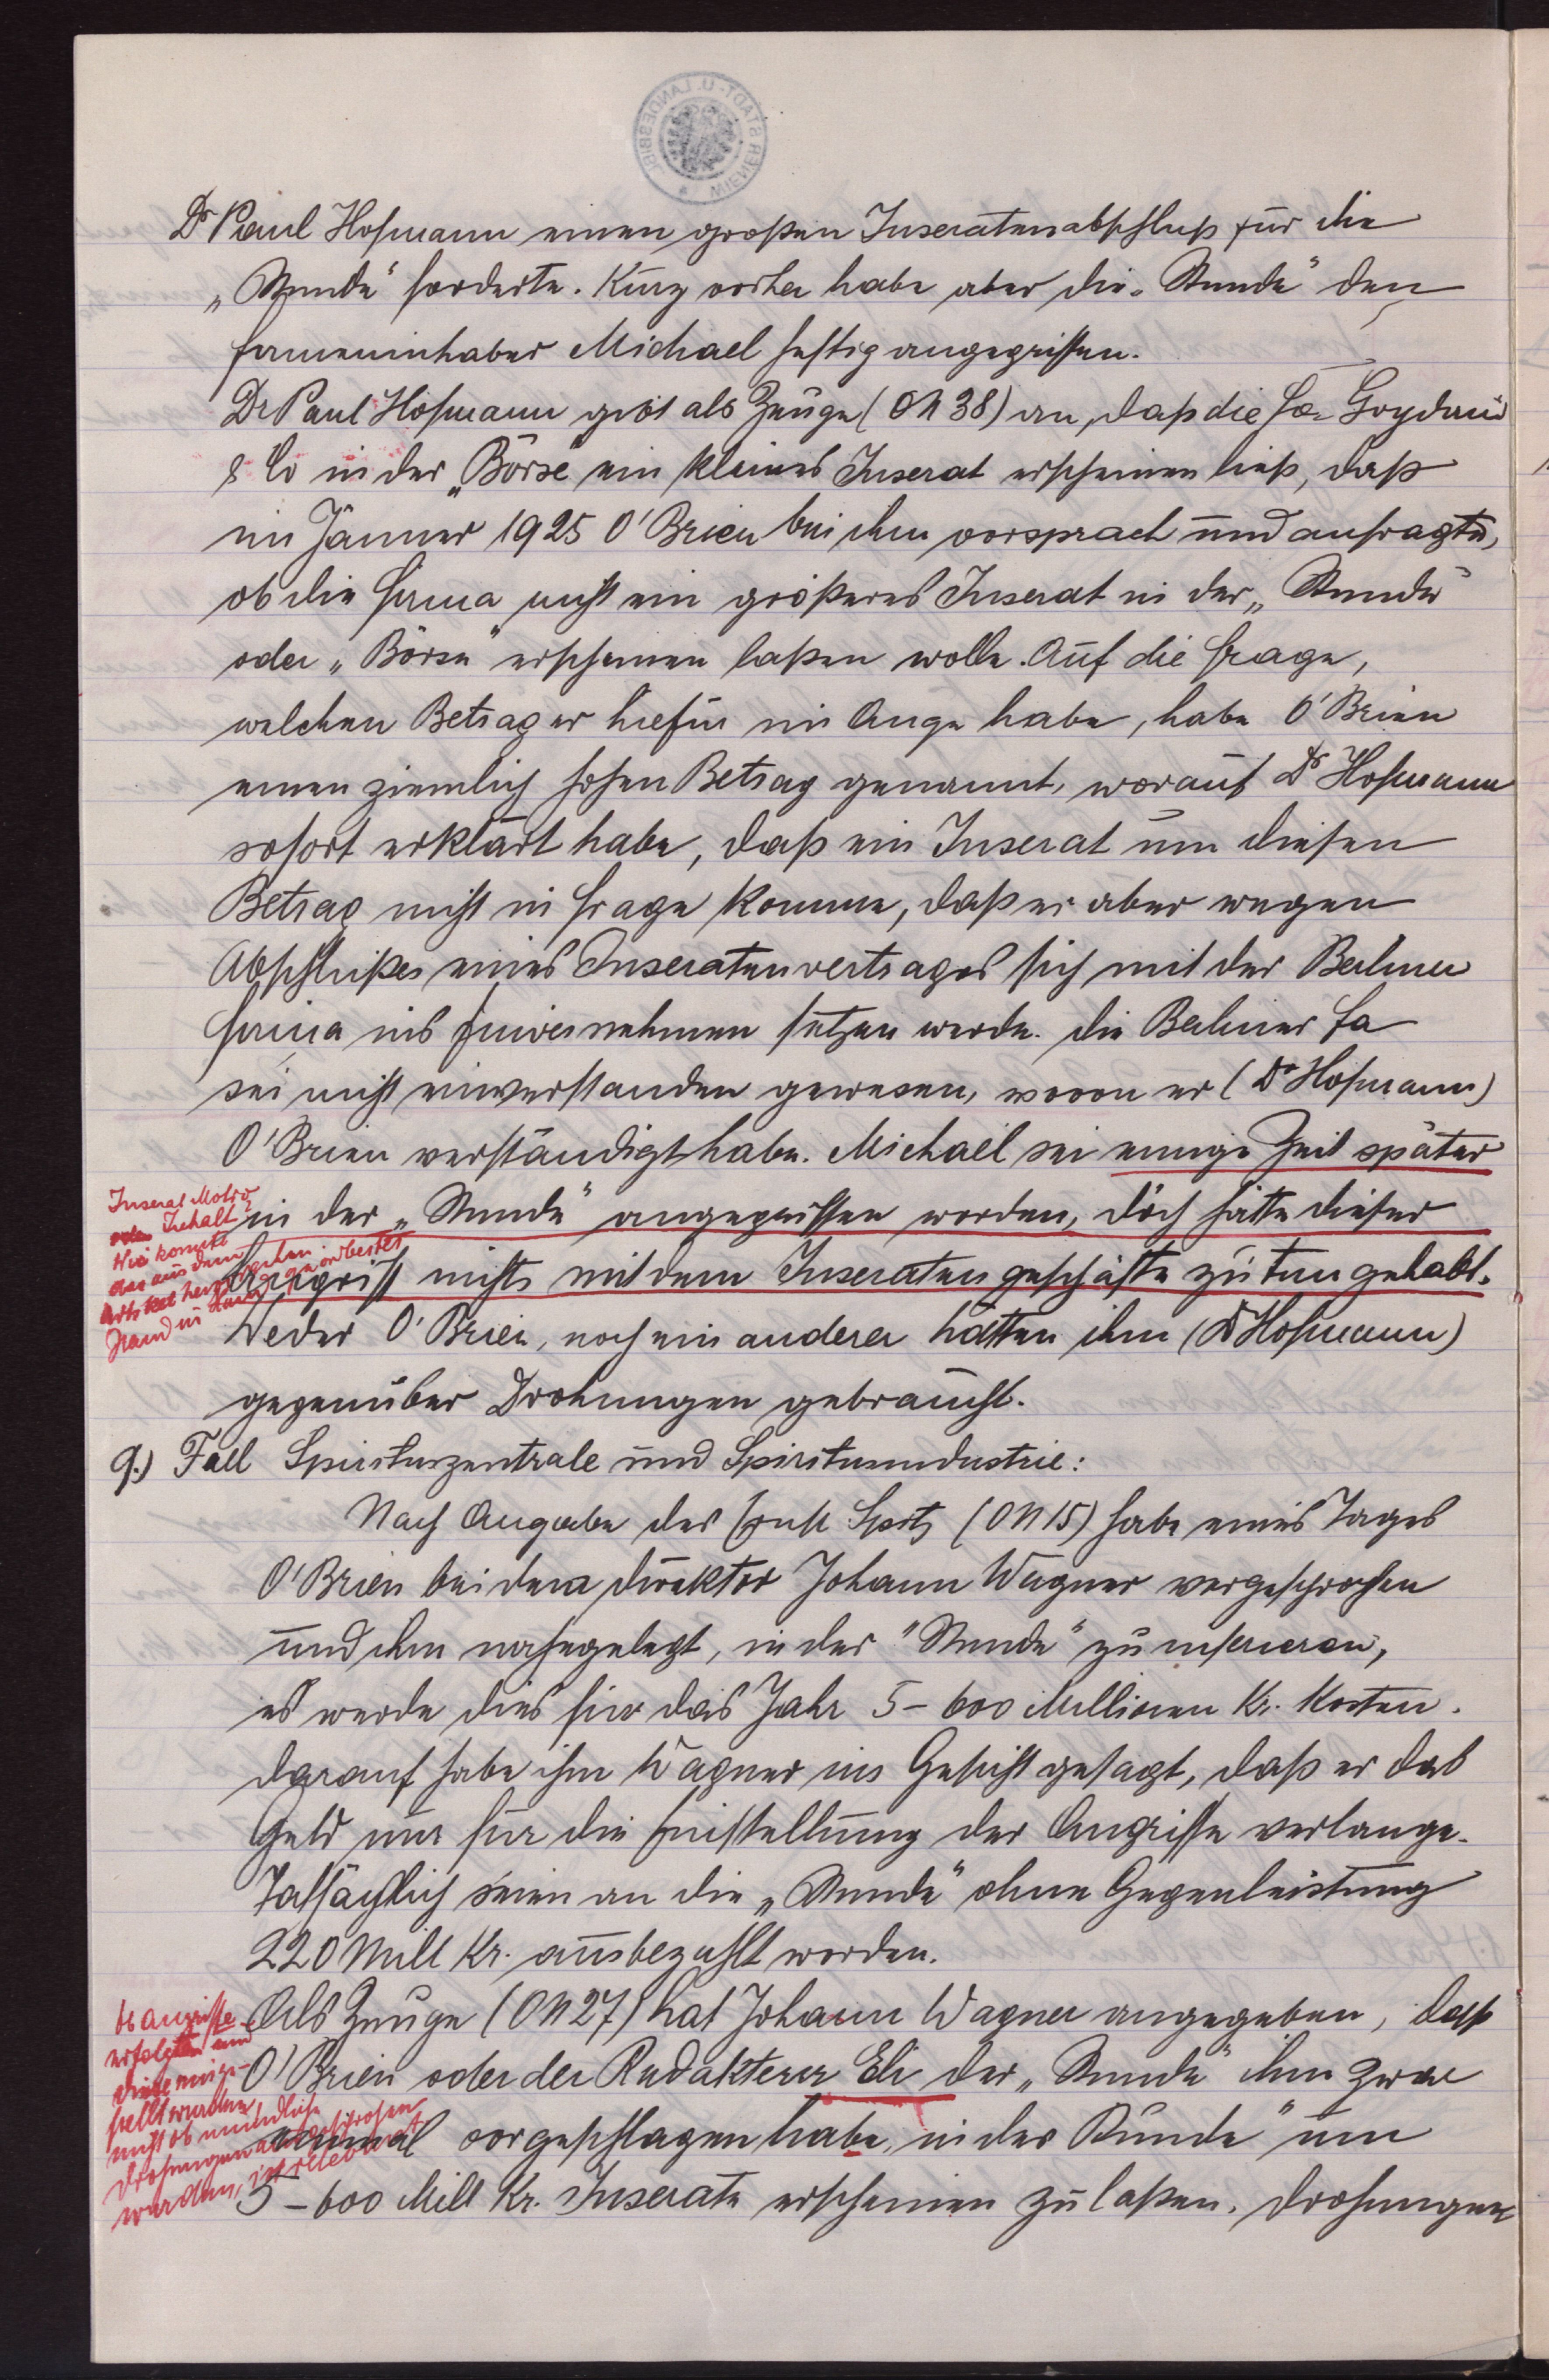 WIENER STADT- U. LANDESBIBL.
Dr Paul Hofmann einen großen Inseratenabschluß für die
„Stunde" forderte. Kurz vorher habe aber die „Stunde" den
Firmeninhaber Michael heftig angegriffen.
Dr Paul Hofmann gibt als Zeuge (ON 38) an, daß die Fa.
& Co in der „Börse" ein kleines Inserat erscheinen ließ, daß
im Jänner 1925 O'Brien bei ihm vorsprach und anfragte,
ob die Firma nicht ein größeres Inserat in der „Stunde"
oder „Börse" erscheinen laßen wolle. Auf die Frage,
welchen Betrag er hiefür im Auge habe, habe O'Brien
einen ziemlich hohen Betrag genannt, worauf Dr Hofmann
sofort erklärt habe, daß ein Inserat um diesen
Betrag nicht in Frage komme, daß er aber wegen
Abschlußes eines Inseratenvertrages sich mit der Berliner
Firma ins Einvernehmen setzen werde. Die Berliner Fa
sei nicht einverstanden gewesen, wovon er (Dr Hofmann)
O'Brien verständigt habe. Michael sei einige Zeit später
in der „Stunde" angegriffen worden, doch hätte dieser
Angriff nichts mit dem Inseratengeschäfte zu tun gehabt.
Inserat Motiv
oder Inhalt?
Wie konnte
das aus dem
Artikel hervorgehen
Hand in Hand gearbeitet
Weder O'Brien, noch ein anderer hätten ihm (Dr Hofmann)
gegenüber Drohungen gebraucht.
9.) Fall Spirituszentrale und Spiritusindustrie:
Nach Angabe des Ernst Spitz (ON 15) habe eines Tages
O'Brien bei dem Direktor Johann Wagner vorgesprochen
und ihm nahegelegt, in der "Stunde" zu inserieren,
es werde dies für das Jahr 5-600 Millionen Kr. kosten.
Darauf habe ihm Wagner ins Gesicht gesagt, daß er das
Geld nur für die Einstellung der Angriffe verlange.
Tatsächlich seien an die „Stunde" ohne Gegenleistung
220 Mill Kr. ausbezahlt worden.
Als Zeuge (ON 27) hat Johann Wagner angegeben, daß
O'Brien oder der Redakteur Eli der „Stunde" ihm zwar
einmal vorgeschlagen habe, in der Stunde" um
5-600 Mill Kr. Inserate erscheinen zu laßen. Drohungen
Ob Angriffe
erfolgten und
diese einge-
stellt wurden
nicht ob mündliche
Drohungen ausgesprochen
wurden, ist relevant